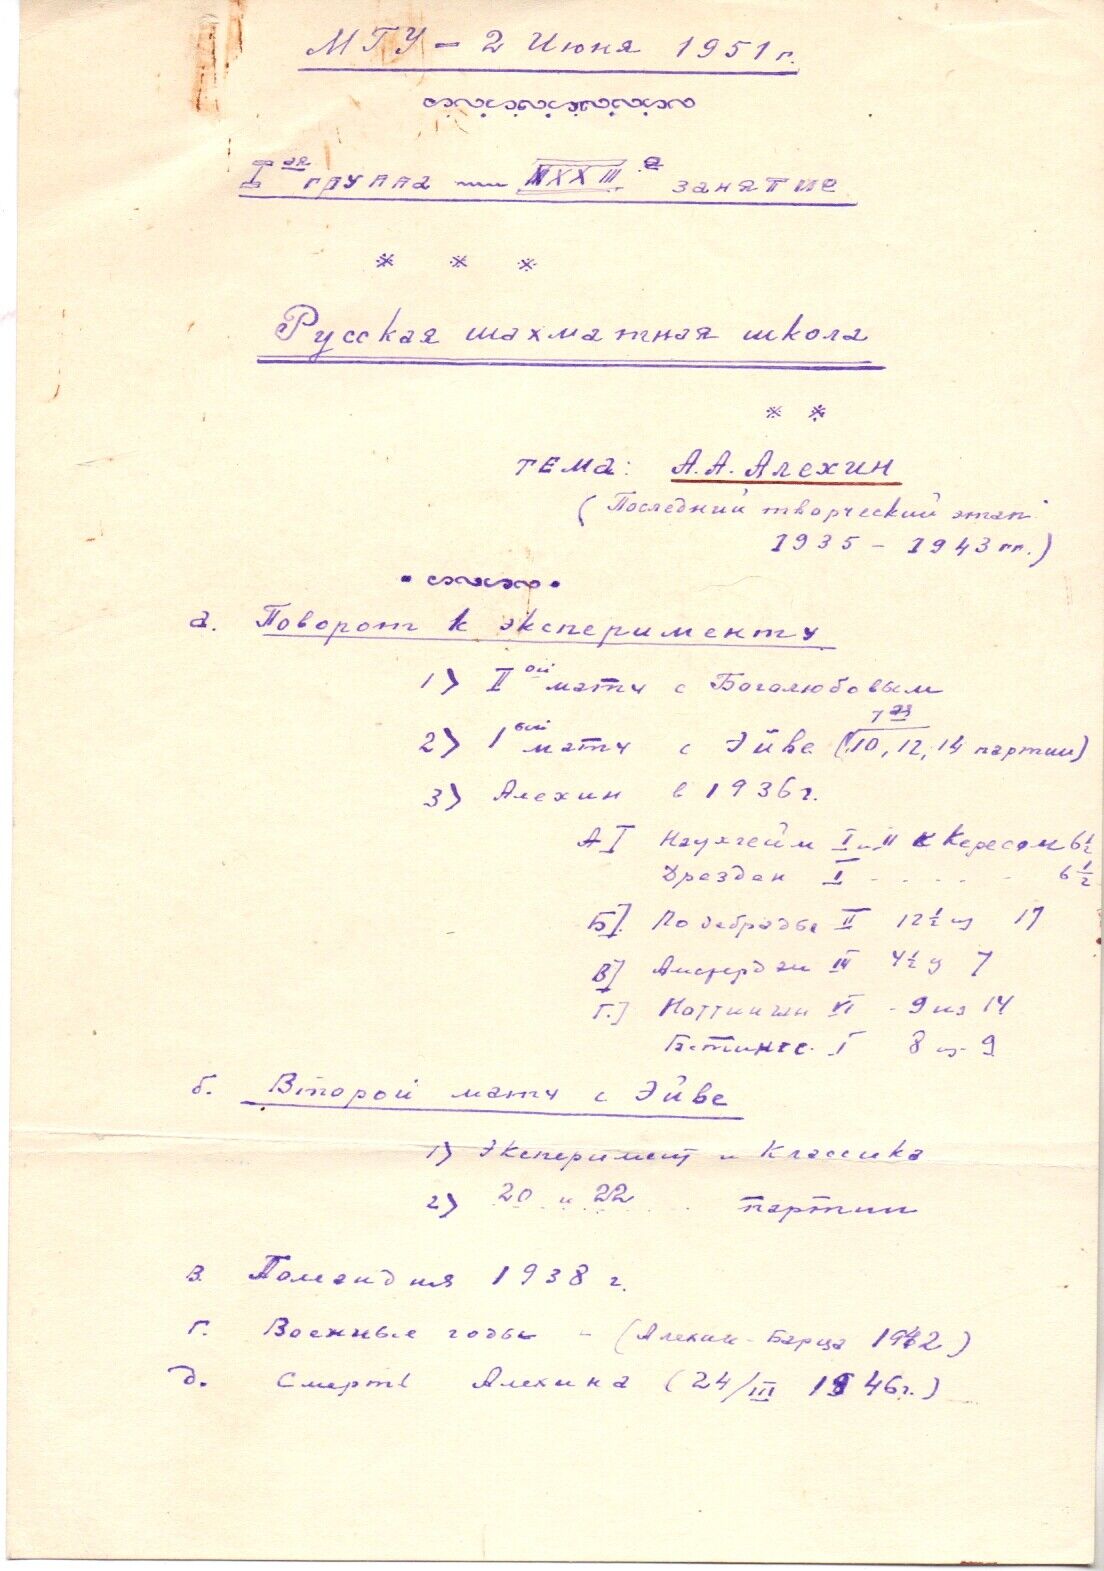 МГУ – 2 Июня 1951 г.
Iая группа — XXIIIе занятие
* * *
Русская шахматная школа
* *
тема: А.А. Алехин
(Последний творческий этап
1935 – 1943 гг.)
а. Поворот к эксперименту
1) IIой матч с Боголюбовым
7ая
2) 1ый матч с Эйве (10, 12, 14 партии)
3) Алехин в 1936 г.
А] Наухгейм I и II с Кересом 6½
Дрезден I - . . . . - 6½
Б]. Подебрады II 12½ из 17
В] Амстердам III 4½ из 7
Г.] Ноттингем VI - 9 из 14
Гастингс I 8 из 9
б. Второй матч с Эйве
1) Эксперимент и классика
2) 20 и 22 . . . партии
в. Голландия 1938 г.
г. Военные годы – (Алехин - Барца 1942)
д. Смерть Алехина (24/III 1946г.)